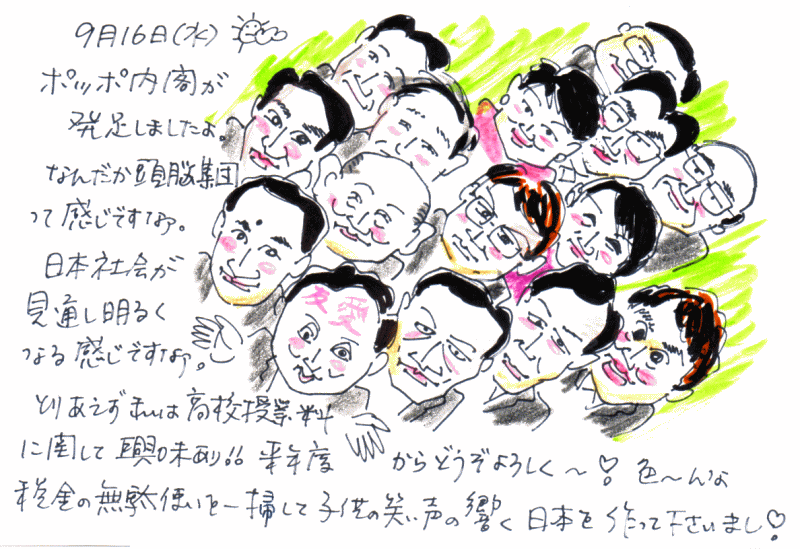 9月16日(水)
ポッポ内閣が
発足しましたよ。
なんだか頭脳集団
って感じですなア。
日本社会が
見通し明るく
なる感じですなア。
友愛
とりあえず私は高校授業料
に関して興味あり!! 来年度からどうぞよろしく〜♡ 色〜んな
税金の無駄使いを一掃して子供の笑い声の響く日本を作って下さいまし♡